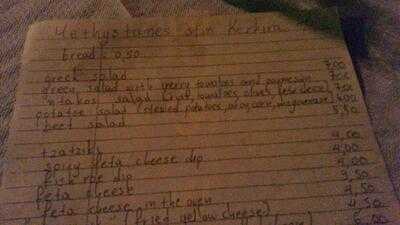 4 ethystanes stin Kerkyra
bread 0,50
greek salad 7,00
green salad with cherry tomatoes and parmesan 7,00
ntakos salad (rusk, tomatoes, olives, feta cheese) 7,50
potatoe salad (boiled potatoes, mayonnaise) 4,00
beet salad 5,50
tzatziki 4,00
spicy feta cheese dip 4,00
fish roe dip 4,00
feta cheese 3,50
feta cheese in the oven 4,50
(fried yellow cheese) 4,50
6,00